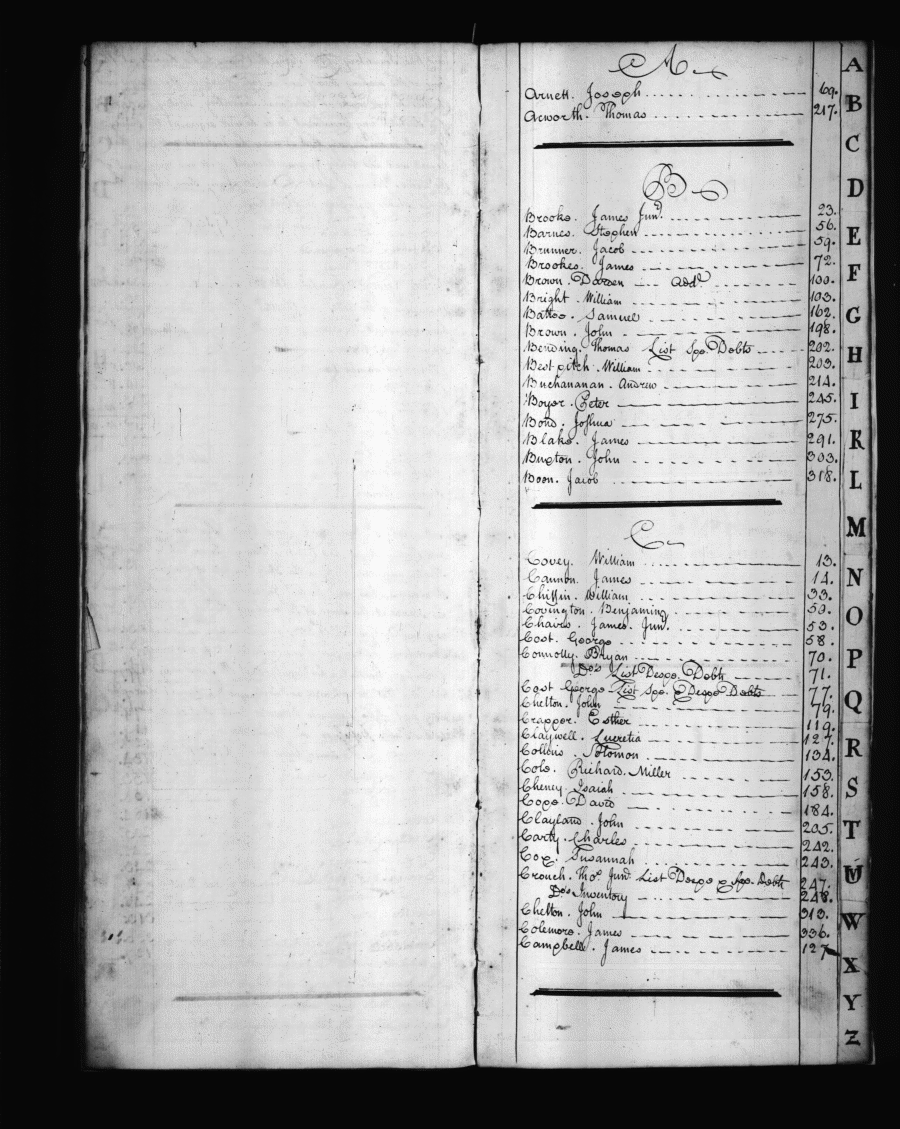 A
Arnett. Joseph 69.
Acworth. Thomas 217.
B
Brooke. James Junr. 23.
Barnes. Stephen 56.
Brunner. Jacob 59.
Brookes. James 72.
Brown. Add. 100.
Bright. William 103.
Battee. Samuel 162.
Brown. John 198.
Bending. Thomas List Spe. Debts 202.
Bestpitch. William 203.
Buchananan. Andrew 214.
Boyer. Peter 245.
Bond. Joshua 275.
Blake. James 291.
Buxton. John 303.
Boon. Jacob 318.
C
Covey. William 13.
Cannon. James 14.
Chiffin. William 33.
Covington. Benjaming 50.
Chaires. James. Junr. 53.
Cost. George 58.
Connolly. Bryan 70.
Do's List Despe. Debts 71.
Cost George List Spe. & Despe Debts 77.
Chelton. John 79.
Crapper. Esther 119.
Claywell. Lucretia 127.
Collins. Solomon 134.
Cole. Richard. Miller 153.
Cheney. Isaiah 158.
Cope. David 184.
Clayland. John 205.
Carty. Charles 242.
Cox. Susannah 243.
Crouch. Tho. Junr. List Despe & Spe. Debts 247.
Do's Inventory 248.
Chelton. John 313.
Colemore. James 336.
Campbell. James 127
A
B
C
D
E
F
G
H
I
K
L
M
N
O
P
Q
R
S
T
W
X
Y
Z